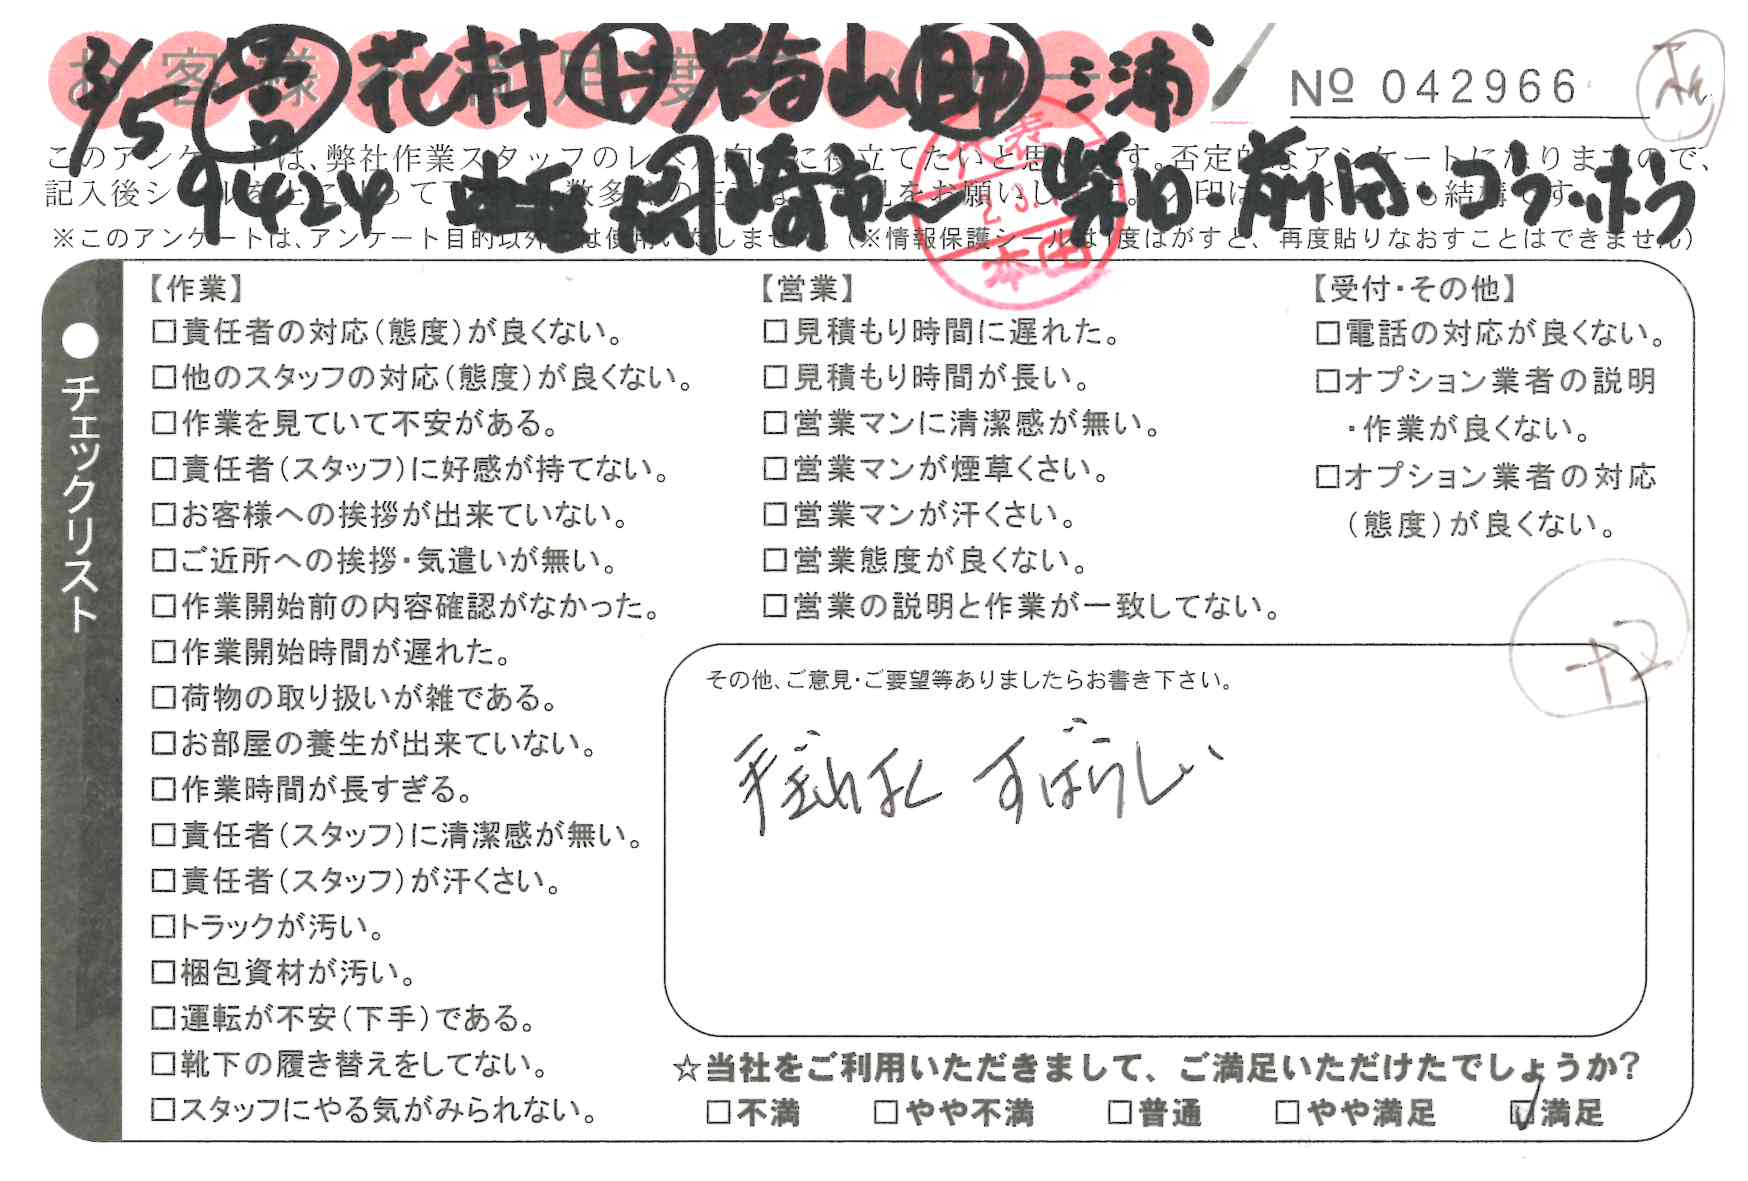 3/5 営 花村 ト 梅山 助 三浦
№ 042966
9424 岡崎市〜 柴田・前田 コラ・ホラ
代表
本田
このアンケートは、弊社作業スタッフのレベル向上に役立てたいと思います。否定的なアンケートになりますので、
※このアンケートは、アンケート目的以外には使用いたしません。(※情報保護シールは1度はがすと、再度貼りなおすことはできません)
●チェックリスト
【作業】
□責任者の対応(態度)が良くない。
□他のスタッフの対応(態度)が良くない。
□作業を見ていて不安がある。
□責任者(スタッフ)に好感が持てない。
□お客様への挨拶が出来ていない。
□ご近所への挨拶・気遣いが無い。
□作業開始前の内容確認がなかった。
□作業開始時間が遅れた。
□荷物の取り扱いが雑である。
□お部屋の養生が出来ていない。
□作業時間が長すぎる。
□責任者(スタッフ)に清潔感が無い。
□責任者(スタッフ)が汗くさい。
□トラックが汚い。
□梱包資材が汚い。
□運転が不安(下手)である。
□靴下の履き替えをしてない。
□スタッフにやる気がみられない。
【営業】
□見積もり時間に遅れた。
□見積もり時間が長い。
□営業マンに清潔感が無い。
□営業マンが煙草くさい。
□営業マンが汗くさい。
□営業態度が良くない。
□営業の説明と作業が一致してない。
【受付・その他】
□電話の対応が良くない。
□オプション業者の説明
・作業が良くない。
□オプション業者の対応
(態度)が良くない。
その他、ご意見・ご要望等ありましたらお書き下さい。
手ぎわよく すばらしい
☆当社をご利用いただきまして、ご満足いただけたでしょうか?
□不満 □やや不満 □普通 □やや満足 ☑満足